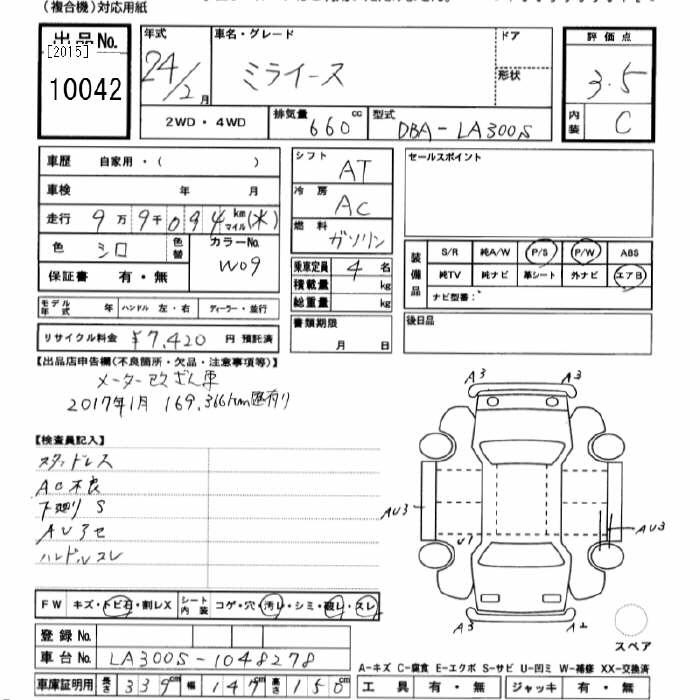 (複合機)対応用紙
出品No.
[2015]
10042
年式
24/2月
車名・グレード
ミライース
ドア
形状
2WD・4WD
排気量 660 cc
型式 DBA-LA300S
評価点
3.5
内装 C
車歴 自家用・( )
車検 年 月
走行 9万9千094 km マイル (米)
色 シロ 色替 カラーNo. W09
保証書 有・無
モデル年式 年 ハンドル 左・右 ディーラー・並行
リサイクル料金 ¥7,420 円 預託済
シフト AT
冷房 AC
燃料 ガソリン
乗車定員 4名
積載量 kg
総重量 kg
書類期限
月 日
セールスポイント
装備品
S/R 純A/W P/S P/W ABS
純TV 純ナビ 革シート 外ナビ エアB
ナビ型番:
後日品
【出品店申告欄(不良箇所・欠品・注意事項等)】
メーター改ざん車
2017年1月 169,366km 歴有り
【検査員記入】
スタッドレス
AC不良
下廻りS
AUアセ
ハンドルスレ
A3 A3
AU3 AU3
U7
A3 A2
スペア
FW キズ・トビ石・割レX シート内装 コゲ・穴・汚レ・シミ・破レ・スレ
登録No.
車台No. LA300S-1048278
車庫証明用 長さ 339cm 幅 147cm 高さ 150cm
A-キズ C-腐食 E-エクボ S-サビ U-凹ミ W-補修 XX-交換済
工具 有・無 ジャッキ 有・無